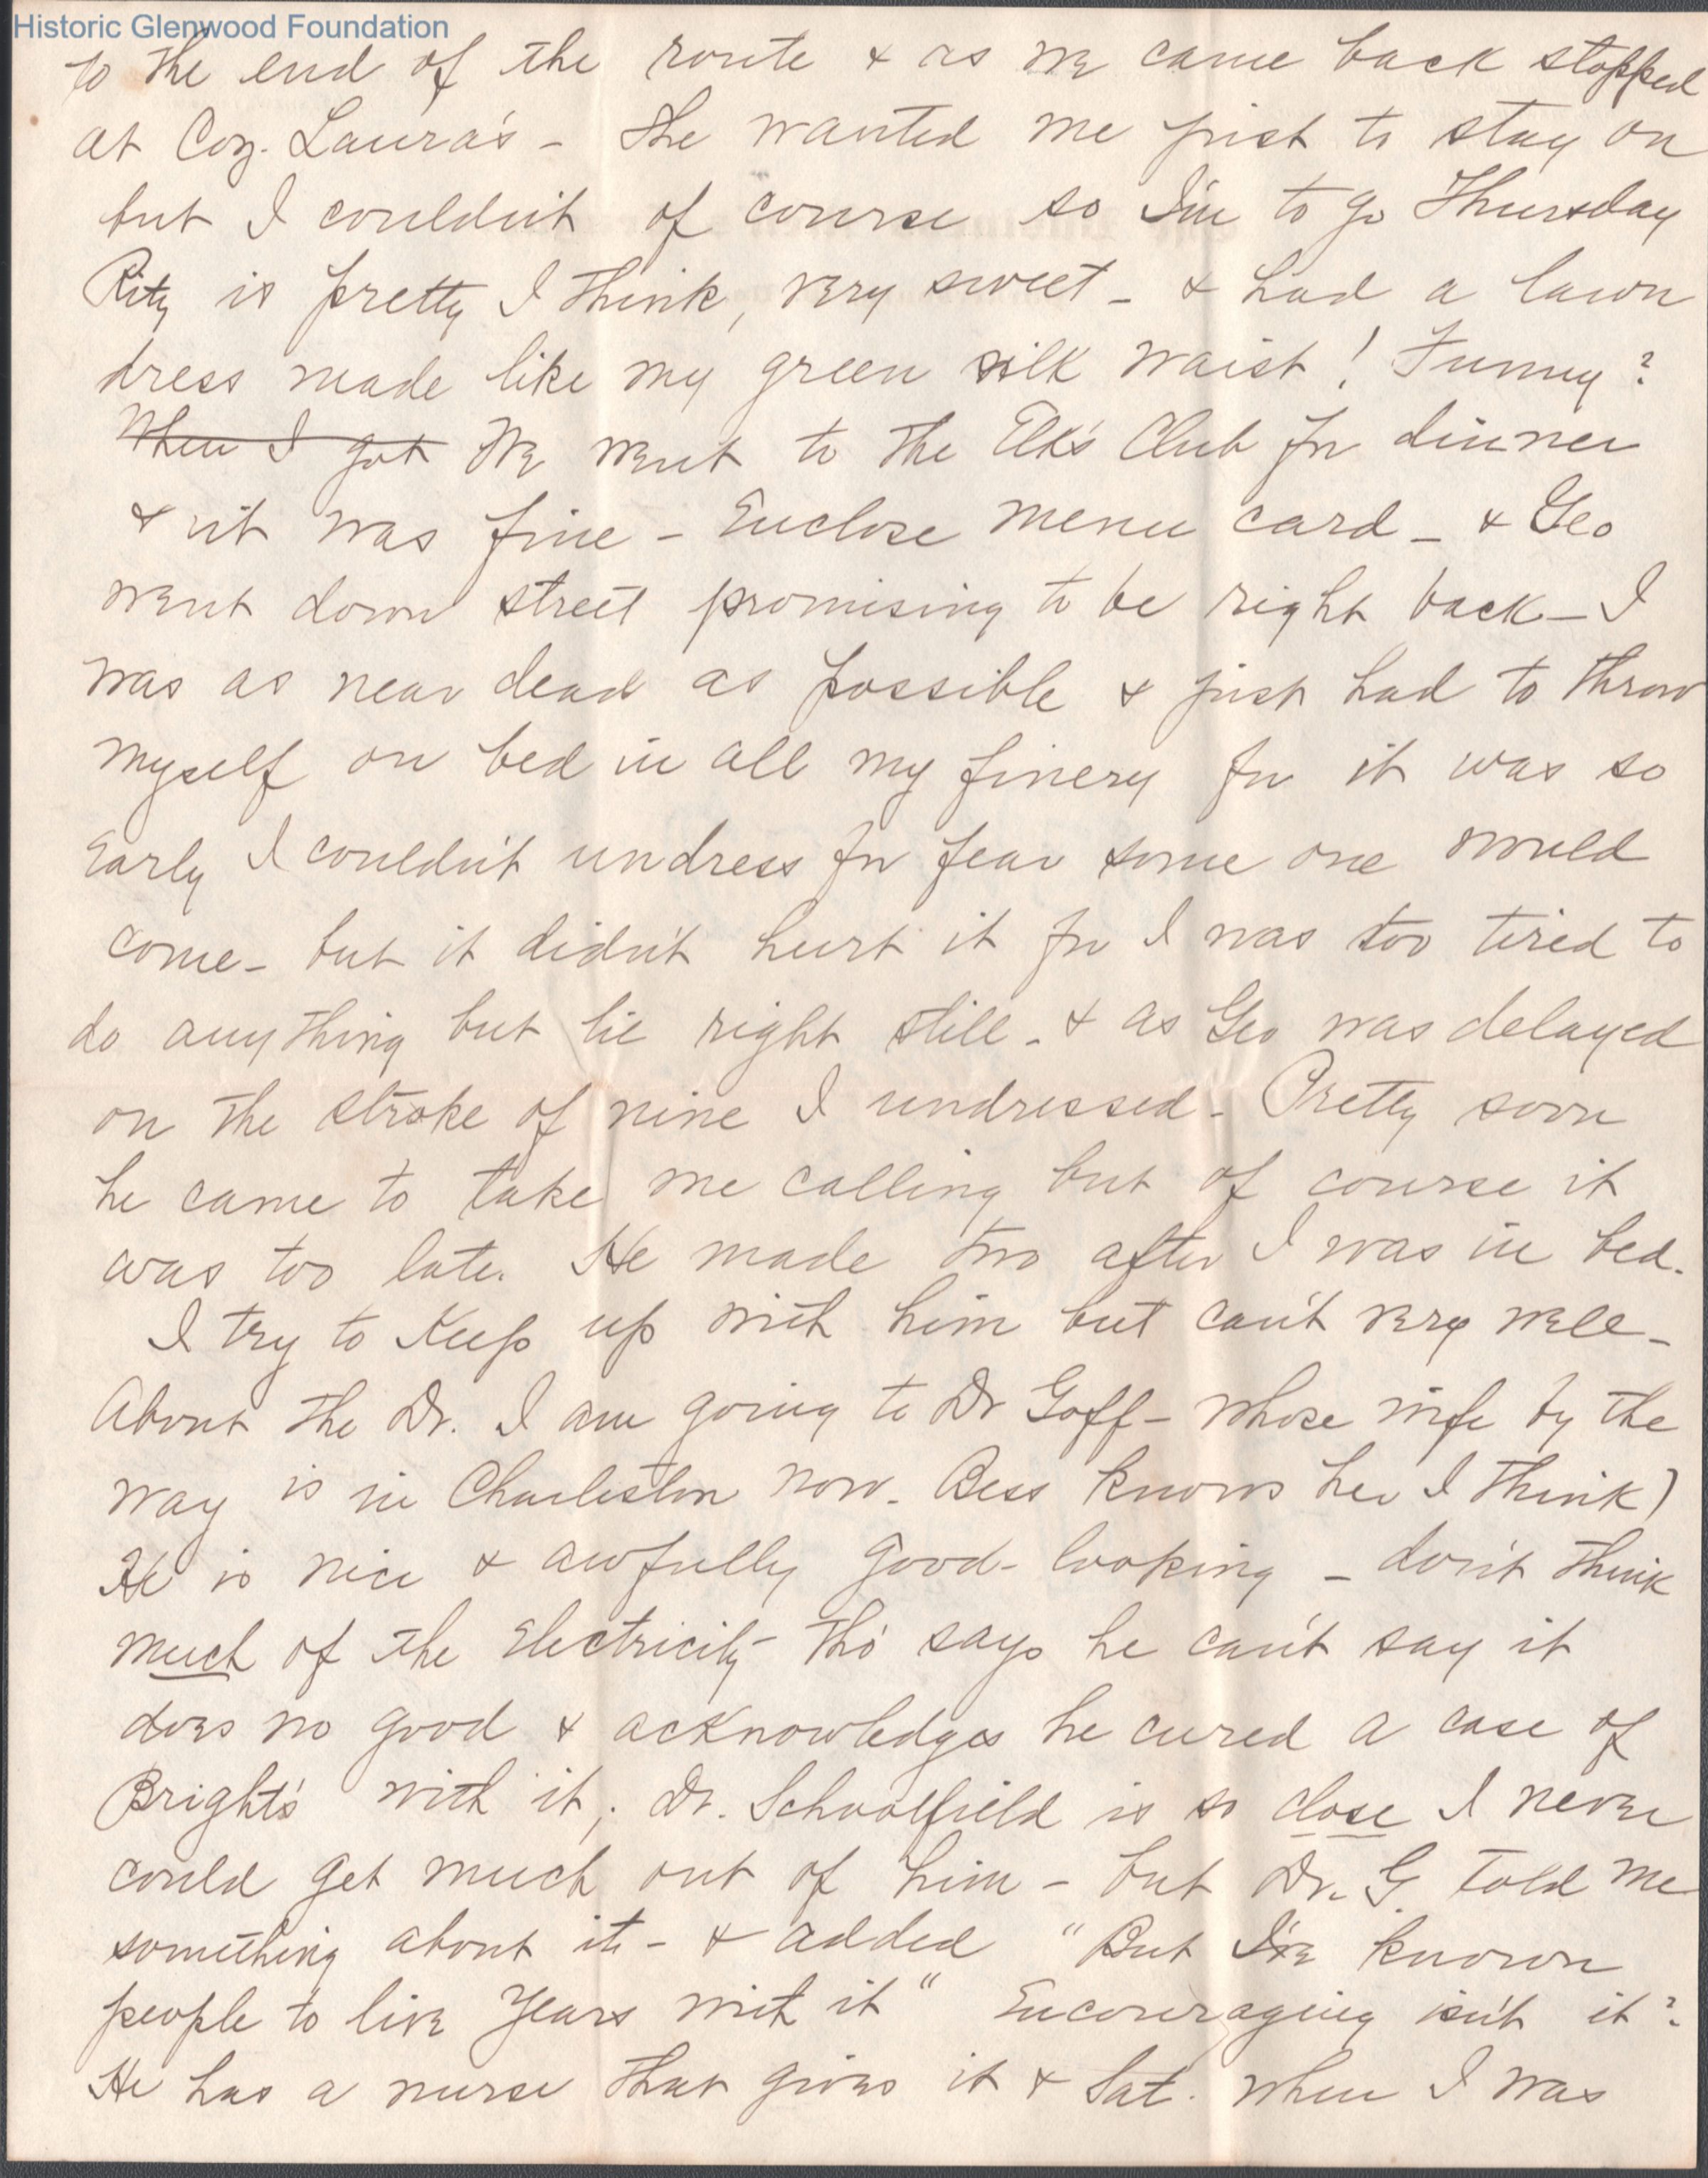 Historic Glenwood Foundation
to the end of the route & as we came back stopped
at Coz. Laura's - She wanted me just to stay on
but I couldn't of course so I'm to go Thursday
is pretty I think, very sweet - & had a lawn
dress made like my green silk waist! Funny?
When I got We went to the Elk's Club for dinner
& it was fine - Enclose menu card - & Geo
went down street promising to be right back - I
was as near dead as possible & just had to throw
myself on bed in all my finery for it was so
Early I couldn't undress for fear some one would
come - but it didn't hurt it for I was too tired to
do any thing but lie right still - & as Geo was delayed
on the stroke of nine I undressed - Pretty soon
he came to take me calling but of course it
was too late. He made two after I was in bed.
I try to Keep up with him but can't very well -
About the Dr. I am going to Dr Goff - whose wife by the
way is in Charleston now. Bess knows her I think)
He is nice & awfully good-looking - don't think
much of the Electricity - tho' says he can't say it
does no good & acknowledges he cured a case of
Bright's with it; Dr. Schoolfield is so close I never
could get much out of him - but Dr. G. told me
something about it - & added "But I've known
people to live years with it" Encouraging isn't it?
He has a nurse that gives it & Sat. when I was